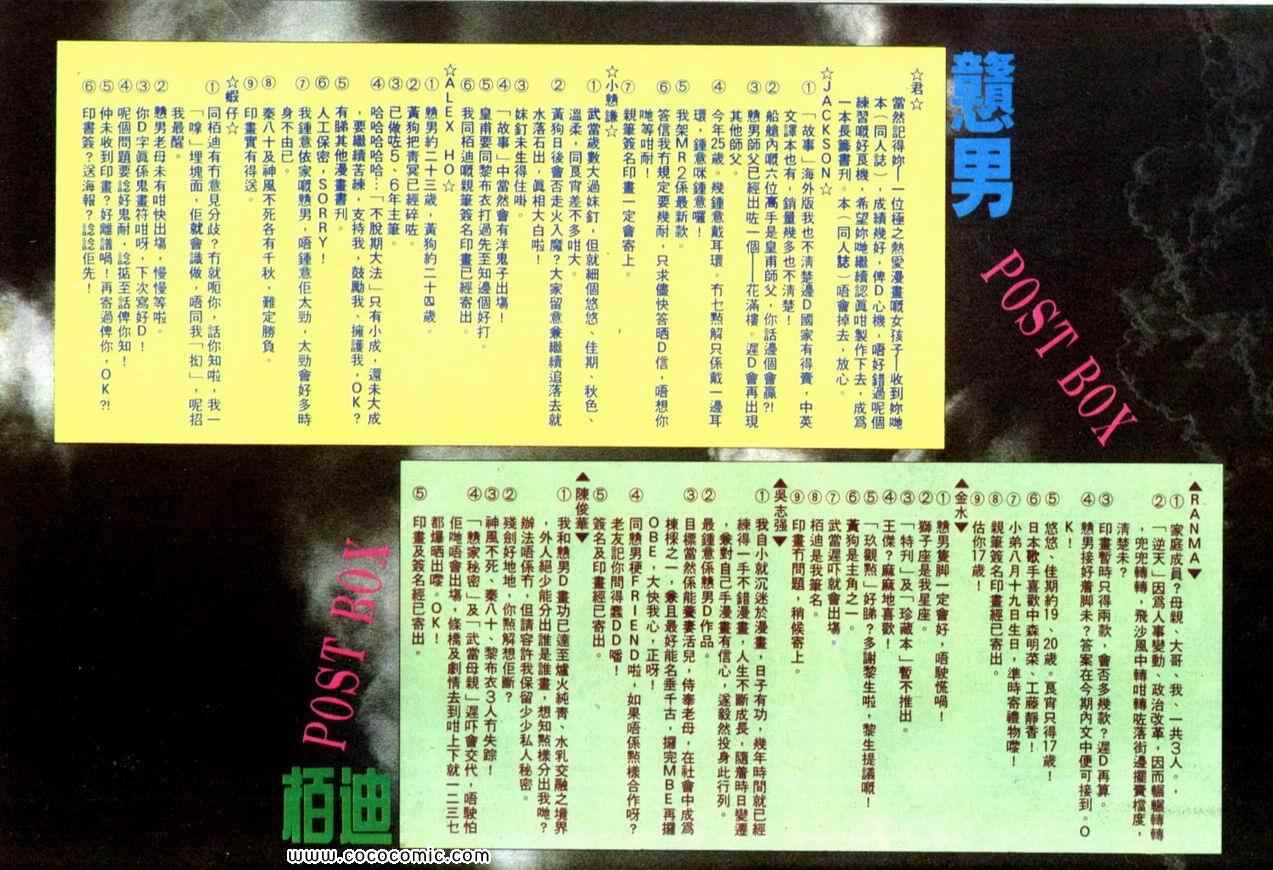 戇男
POST BOX
☆君☆
當然記得妳——一位極之熱愛漫畫嘅女孩子——收到妳哋
本(同人誌),成績幾好,俾D心機,唔好錯過呢個
練習嘅好良機,希望妳哋繼續認眞咁製作下去,成爲
一本長籌書刊。本(同人誌)唔會掉去,放心。
☆JACKSON☆
①「故事」海外版我也不清楚邊D國家有得賣,中英
文譯本也有,銷量幾多也不清楚!
②船艙內嘅六位高手是皇甫師父,你話邊個會贏?!
③戇男師父已經出咗一個——花滿樓。遲D會再出現
其他師父。
④今年25歲。幾鍾意戴耳環。冇乜點解只係戴一邊耳
環,鍾意咪鍾意囉!
⑤我架MR2係最新款。
⑥答信我冇規定要幾耐,只求儘快答晒D信,唔想你
哋等咁耐!
⑦親筆簽名印畫一定會寄上。
☆小戇謙☆
①武當歲數大過妹釘,但就細個悠悠、佳期、秋色、
溫柔,同良宵差不多咁大。
②黃狗日後會否走火入魔?大家留意兼繼續追落去就
水落石出,眞相大白啦!
③妹釘未生得住啩。
④「故事」中當然會有洋鬼子出塲!
⑤皇甫要同黎布衣打過先至知邊個好打。
⑥我同栢迪嘅親筆簽名印畫已經寄出。
☆ALEX HO☆
①戇男約二十三歲,黃狗約二十四歲。
②黃狗把靑冥已經碎咗。
③已做咗5、6年主筆。
④哈哈哈哈哈…「不脫期大法」只有小成,還未大成
,要繼續苦練,支持我,鼓勵我、擁護我,OK?
⑤有睇其他漫畫書刊。
⑥人工保密,SORRY!
⑦我鍾意依家嘅戇男,唔鍾意佢太勁,太勁會好多時
身不由己。
⑧秦八十及神風不死各有千秋,難定勝負。
⑨印畫實有得送。
☆蝦仔☆
①同栢迪有冇意見分歧?冇就呃你,話你知啦,我一
「嘷」埋塊面,佢就會識做,唔同我「拗」,呢招
我最醒。
②戇男老母未有咁快出塲,慢慢等啦。
③你D字眞係鬼畫符咁呀,下次寫好D!
④呢個問題要諗好鬼耐,諗掂至話俾你知!
⑤仲未收到印畫?好離譜喎!再寄過俾你,OK?!
⑥印書簽?送海報?諗諗佢先!
▲RANMA▼
①家庭成員?母親、大哥、我、一共3人。
②「逆天」因爲人事變動、政治改革,因而輾輾轉轉
,兜兜轉轉,飛沙風中轉咁轉咗落街邊擺賣檔度,
清楚未?
③印畫暫時只得兩款,會否多幾款?遲D再算。
④戇男接好着脚未?答案在今期內文中便可接到。O
K!
⑤悠悠、佳期約19、20歲。良宵只得17歲!
⑥日本歌手喜歡中森明菜、工藤靜香!
⑦小弟八月十九日生日,準時寄禮物嚟!
⑧親筆簽名印畫經已寄出。
⑨估你17歲!
▲金水▼
①戇男隻脚一定會好,唔駛慌喎!
②獅子座是我星座。
③「特刋」及「珍藏本」暫不推出。
④王傑?麻麻地喜歡!
⑤「玖觀點」好睇?多謝黎生啦,黎生提議嘅!
⑥黃狗是主角之一。
⑦武當遲吓就會出塲。
⑧栢迪是我筆名。
⑨印畫冇問題,稍候寄上。
▲吳志强▼
①我自小就沉迷於漫畫,日子有功,幾年時間就已經
練得一手不錯漫畫,人生不斷成長,隨着時日變遷
,兼對自己手漫畫有信心,遂毅然投身此行列。
②最鍾意係戇男D作品。
③目標當然係能養妻活兒,侍奉老母,在社會中成爲
棟樑之一,兼且最好能名垂千古,攞完MBE再攞
OBE,大快我心,正呀!
④同戇男梗FRIEND啦,如果唔係點樣合作呀?
老友記你問得蠢DD噃!
⑤簽名及印畫經已寄出。
▲陳俊華▼
①我和戇男D畫功已達至爐火純靑、水乳交融之境界
,外人絕少能分出誰是誰畫,想知點樣分出我哋?
辦法唔係冇,但請容許我保留少少私人秘密。
②殘劍好地地,你點解想佢斷?
③神風不死、秦八十、黎布衣3人冇失踪!
④「戇家秘密」及「武當母親」遲吓會交代,唔駛怕
佢哋唔會出塲,條橋及劇情去到咁上下就一二三七
都爆晒出嚟。OK!
⑤印畫及簽名經已寄出。
POST BOX
栢迪
www.cococomic.com